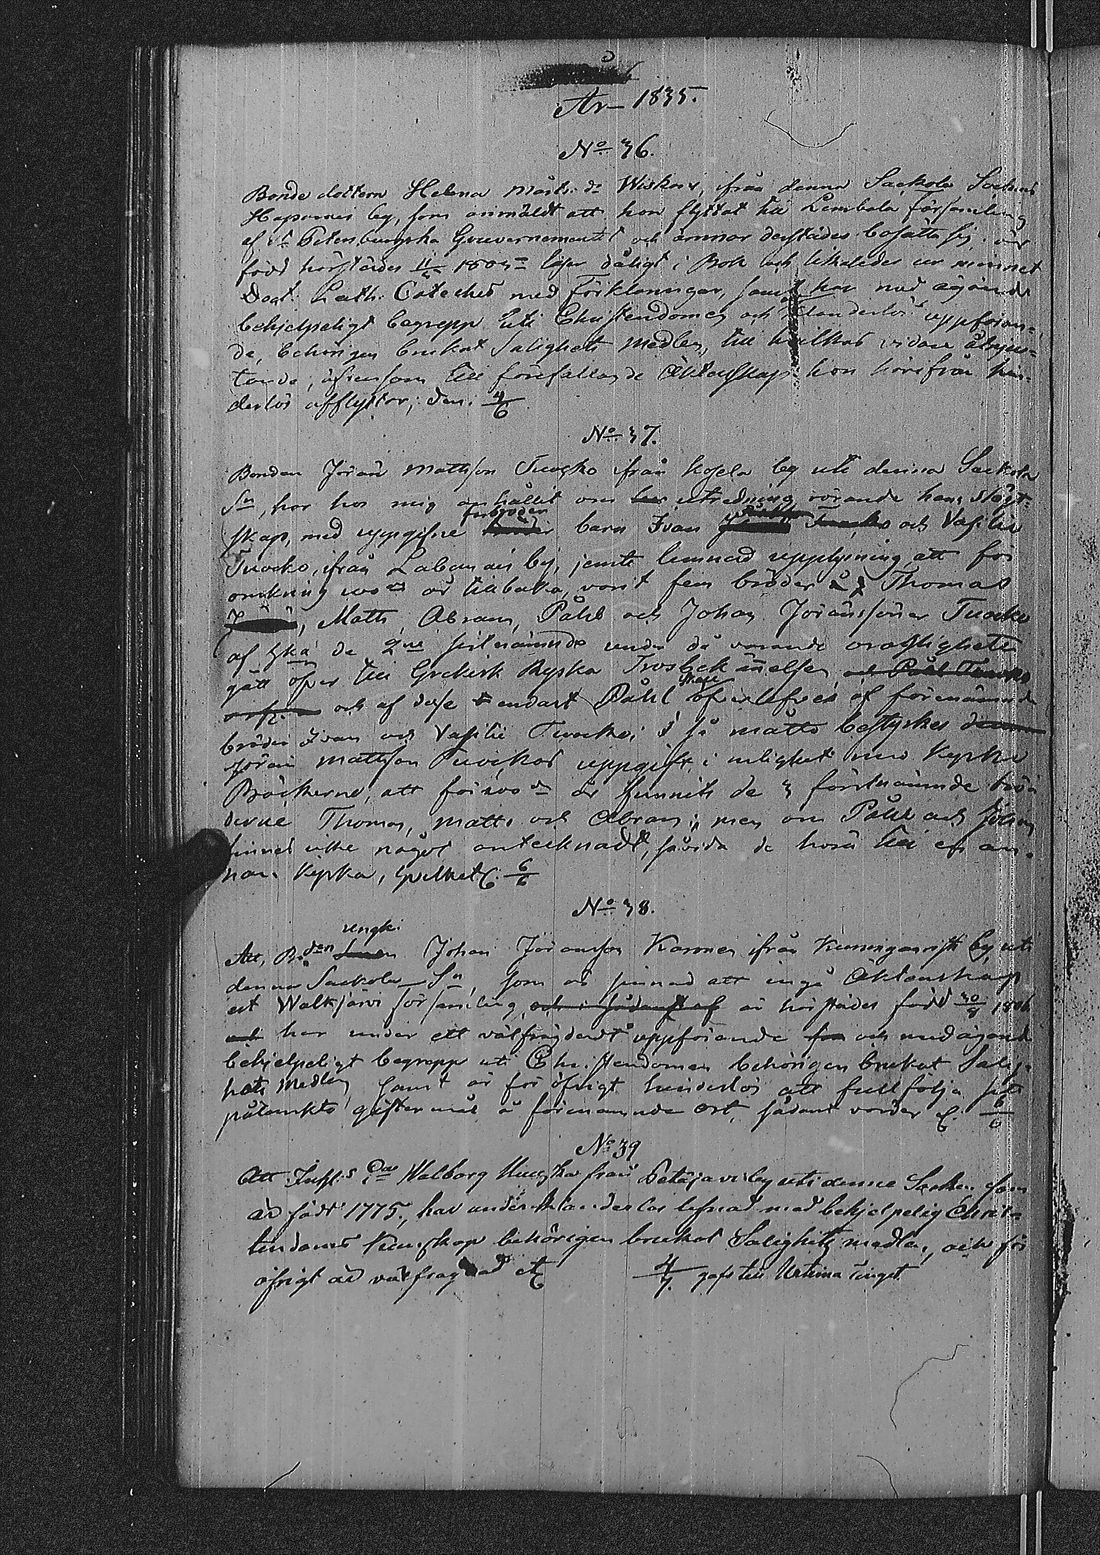 År 1835.
No 36.
Bonde dottern Helena Matts dr Wiskari, från denna Sackola Sockns
Haparnis by, som anmäldt att hon flyttat till Lembala församling
af St Petersburgska Gouvernementet och ämnar derstädes bosätta sig, är
född härstädes 1805 läser dåligt i Bok och likaledes ur minnet
Doct: Luth: Cateches med förklaringar, samt har med ägande
behjelpeligt begrepp uti Christendomen och klanderlös uppföran-
de, behörigen brukat Salighets medlen, till hvilkas vidare åtnju-
tande, äfvensom till förefallande Äktenskap hon härifrån hin-
derlös afflyttar; den. 4/6
No 37.
Bonden Jöran Mattsson Tuocko från kojela by uti denna Sackola
Sn, har hos mig anhållit om utredning rörande hans slägt-
skap, med uppgifne farbroder barn Ivan Tuocko och Vasilie
Tuocko, ifrån Labanais by, jemte lemnad upplysning att för
omkring 100 år tillbaka, varit fem bröder Thomas
Matts Abram, Påhl och Johan Jöranssöner Tuocko
af hka de 2ne sistnämnde under då varande oroligheter
gått öfver till Grekisk Ryska Trosbekännelsen, och Påhl Tuocko
och af desse endast Påhl öfverlefves af förenämnde
bröder Ivan och Vasilie Tuocko; i så måtto bestyrkes
Jöran Mattsson Tuockos uppgift, i enlighet med Kyrko
Böckerne, att för 100 de år funnits de 3 förstnämnde brö-
derne Thomas, Matts och Abram; men om Påhl och Johan
finnes icke något antecknadt, såvida de höra till en an-
nan Kyrka, hvilket &c. 6/6
No 38.
ungk:
Att, Bonden Johan Jöransson Karonen ifrån Kuninganristi by, uti
denna Sackola Sn, som är sinnad att ingå Äktenskap
ut Walkjärvi församling, är härstädes född 30/8 1806
har under ett välfrägdadt uppförande och med ägande
behjelpeligt begrepp uti Christendomen behörigen brukat Salig-
hets medlen, samt är för öfrigt hinderlös att fullfölja sitt
påtänkta giftermål å förenämnde ort, sådant varder &c. 6/6
No 39
Att Inhs Dr Walborg från Petäjärvi by uti denna Socken som
är född 1775, har under klanderlös lefnad med behjelpelig Chris-
tendoms Kunskap behörigen brukat Salighets medlen, och för
öfrigt är välfrägdad &c 4/7. gafs till Urtima Tinget